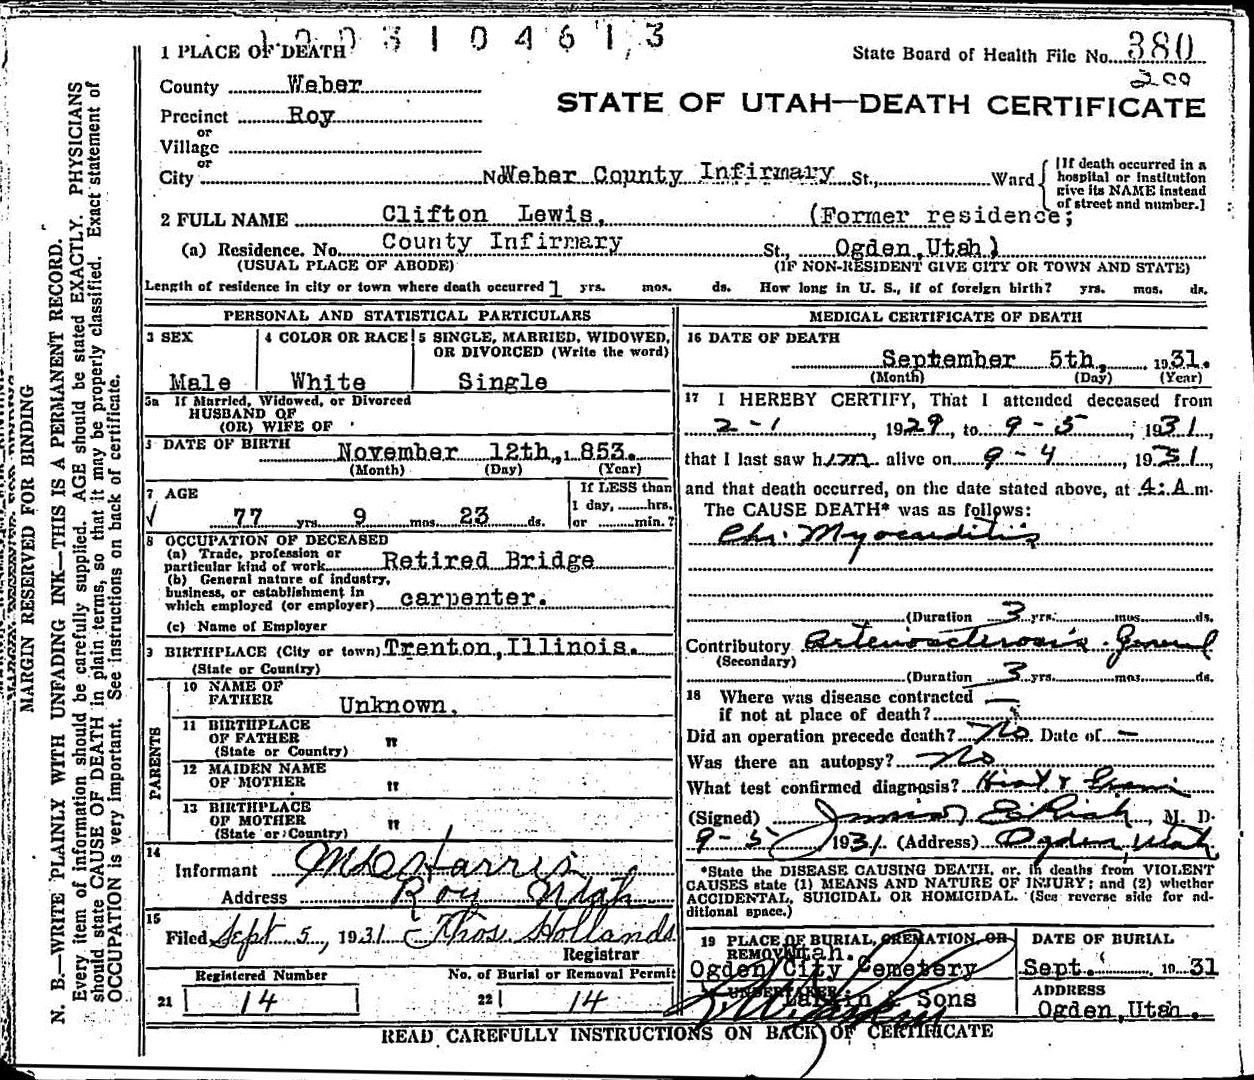 1003104613
1 PLACE OF DEATH
State Board of Health File No. 380
200
County Weber
STATE OF UTAH—DEATH CERTIFICATE
Precinct Roy
or
Village
or
City No. Weber County Infirmary St., Ward
[If death occurred in a
hospital or institution
give its NAME instead
of street and number.]
2 FULL NAME Clifton Lewis. (Former residence;
(a) Residence. No. County Infirmary St., Ogden, Utah)
(USUAL PLACE OF ABODE) (IF NON-RESIDENT GIVE CITY OR TOWN AND STATE)
Length of residence in city or town where death occurred 1 yrs. mos. ds. How long in U. S., if of foreign birth? yrs. mos. ds.
PERSONAL AND STATISTICAL PARTICULARS
3 SEX
Male
4 COLOR OR RACE
White
5 SINGLE, MARRIED, WIDOWED,
OR DIVORCED (Write the word)
Single
5a If Married, Widowed, or Divorced
HUSBAND OF
(OR) WIFE OF
DATE OF BIRTH November 12th, 1853.
(Month) (Day) (Year)
7 AGE
77 yrs. 9 mos. 23 ds.
If LESS than
1 day, hrs.
or min.?
8 OCCUPATION OF DECEASED
(a) Trade, profession or
particular kind of work Retired Bridge
(b) General nature of industry,
business, or establishment in
which employed (or employer) carpenter.
(c) Name of Employer
BIRTHPLACE (City or town) Trenton, Illinois.
(State or Country)
PARENTS
10 NAME OF
FATHER Unknown.
11 BIRTHPLACE
OF FATHER "
(State or Country)
12 MAIDEN NAME
OF MOTHER "
13 BIRTHPLACE
OF MOTHER "
(State or Country)
14
Informant Harris
Address Roy Utah
15
Filed Sept 5, 1931 Thos. Hollands
Registrar
Registered Number
21 14
No. of Burial or Removal Permit
22 14
MEDICAL CERTIFICATE OF DEATH
16 DATE OF DEATH
September 5th, 1931.
(Month) (Day) (Year)
17 I HEREBY CERTIFY, That I attended deceased from
2-1, 1929, to 9-5, 1931,
that I last saw him alive on 9-4, 1931,
and that death occurred, on the date stated above, at 4:A m.
The CAUSE DEATH* was as follows:
Chr. Myocarditis
(Duration 3 yrs. mos. ds.
Contributory Arteriosclerosis. General
(Secondary)
(Duration 3 yrs. mos. ds.
18 Where was disease contracted —
if not at place of death?
Did an operation precede death? No Date of —
Was there an autopsy? No
What test confirmed diagnosis? Hist &
(Signed) Junior E Rich, M. D.
9-5 1931. (Address) Ogden, Utah
*State the DISEASE CAUSING DEATH, or, in deaths from VIOLENT
CAUSES state (1) MEANS AND NATURE OF INJURY; and (2) whether
ACCIDENTAL, SUICIDAL OR HOMICIDAL. (See reverse side for ad-
ditional space.)
19 PLACE OF BURIAL, CREMATION, OR
REMOVAL Utah.
Ogden City Cemetery
DATE OF BURIAL
Sept. 1931
UNDERTAKER
Larkin & Sons
ADDRESS
Ogden, Utah.
READ CAREFULLY INSTRUCTIONS ON BACK OF CERTIFICATE
MARGIN RESERVED FOR BINDING
N. B.—WRITE PLAINLY WITH UNFADING INK—THIS IS A PERMANENT RECORD.
Every item of information should be carefully supplied. AGE should be stated EXACTLY. PHYSICIANS
should state CAUSE OF DEATH in plain terms, so that it may be properly classified. Exact statement of
OCCUPATION is very important. See instructions on back of certificate.